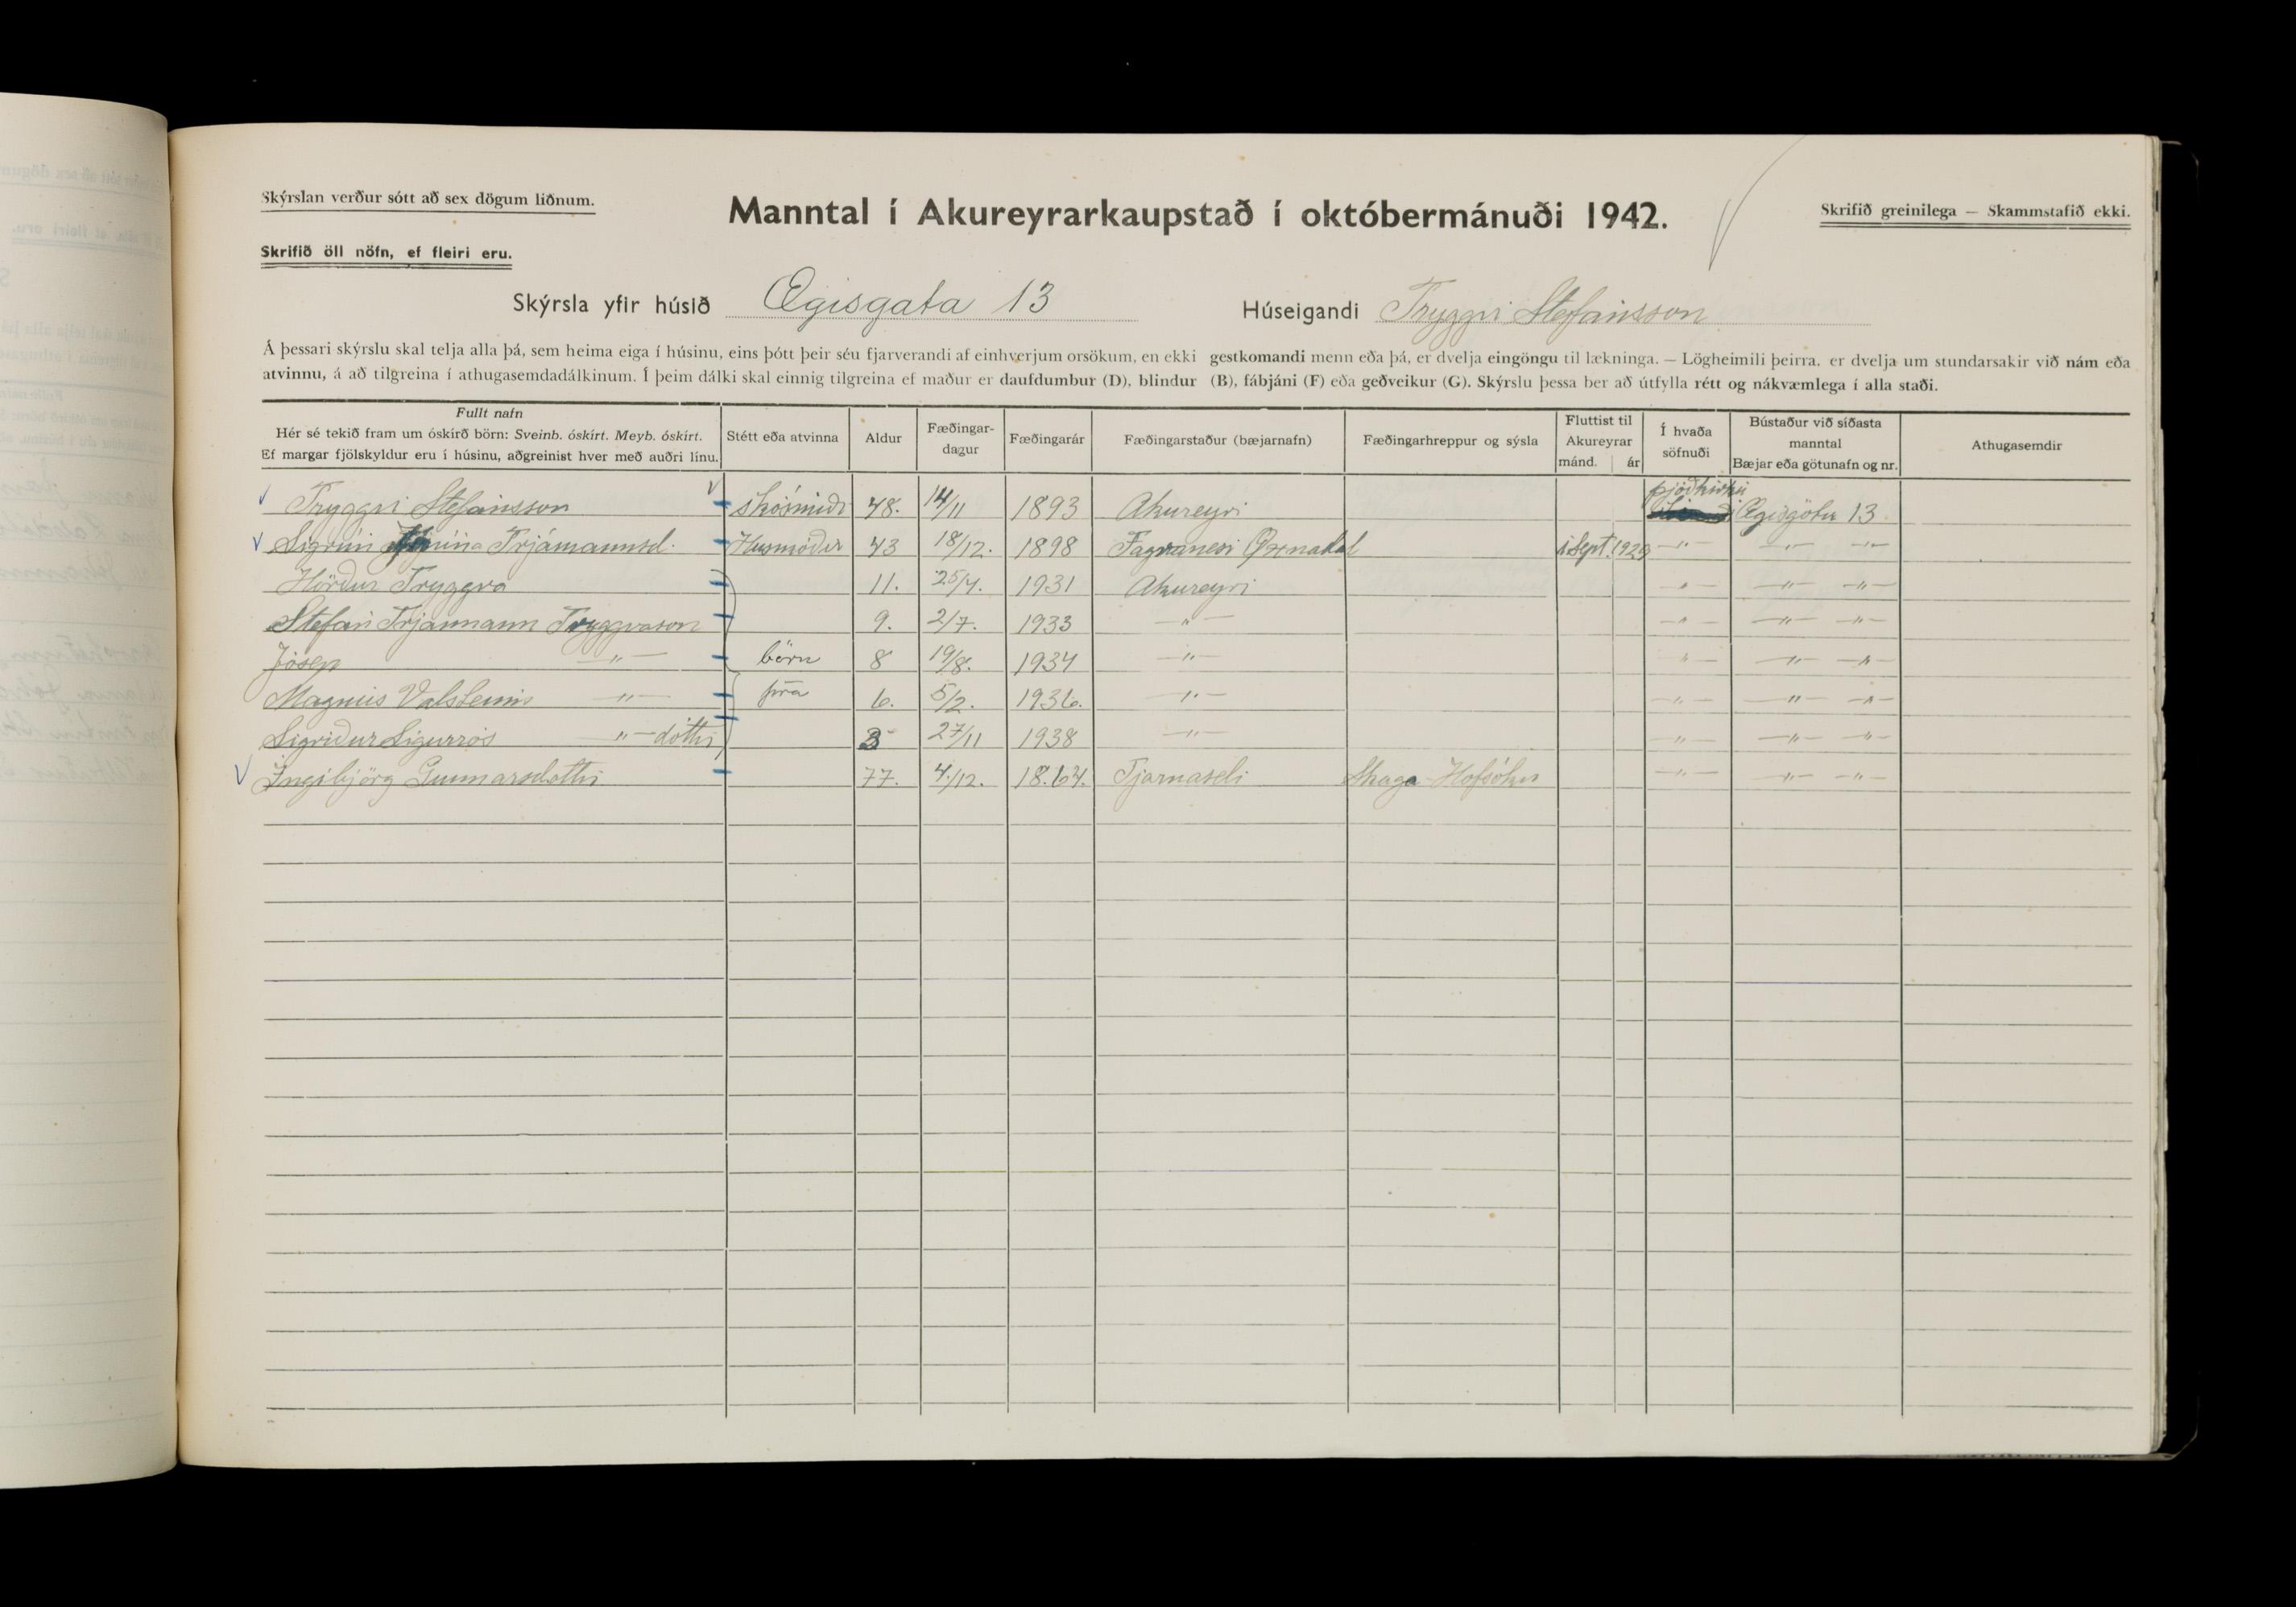 Skýrslan verður sótt að sex dögum liðnum.
Manntal í Akureyrarkaupstað í októbermánuði 1942.
Skrifið greinilega — Skammstafið ekki.
Skrifið öll nöfn, ef fleiri eru.
Skýrsla yfir húsið Ægisgata 13 Húseigandi Tryggvi Stefánsson
Á þessari skýrslu skal telja alla þá, sem heima eiga í húsinu, eins þótt þeir séu fjarverandi af einhverjum orsökum, en ekki gestkomandi menn eða þá, er dvelja eingöngu til lækninga. — Lögheimili þeirra. er dvelja um stundarsakir við nám eða
atvinnu, á að tilgreina í athugasemdadálkinum. Í þeim dálki skal einnig tilgreina ef maður er daufdumbur (D), blindur (B), fábjáni (F) eða geðveikur (G). Skýrslu þessa ber að útfylla rétt og nákvæmlega í alla staði.
Fullt nafn
Hér sé tekið fram um óskírð börn: Sveinb. óskírt. Meyb. óskírt.
Ef margar fjölskyldur eru í húsinu, aðgreinist hver með auðri línu.
Stétt eða atvinna
Aldur
Fæðingar-
dagur
Fæðingarár
Fæðingarstaður (bæjarnafn)
Fæðingarhreppur og sýsla
Fluttist til
Akureyrar
mánd. ár
Í hvaða
söfnuði
Bústaður við síðasta
manntal
Bæjar eða götunafn og nr.
Athugasemdir
þjóðkirkju
Tryggvi Stefánsson skósmiðr 48. 14/11 1893 Akureyri Ægisgötu 13
Sigrún Trjámannsd. Húsmóðir 43 18/12. 1898 Fagranesi Öxnadal í Sept. 1929 —"— —"— —"—
Hörður Tryggva 11. 25/4. 1931 Akureyri —"— —"— —"—
Stefán Trjámann Tryggvason 9. 2/7. 1933 —"— —"— —"— —"—
Jósep —"— börn 8 19/8. 1934 —"— —"— —"— —"—
Magnús Valsteinn —"— þrra 6. 5/2. 1936. —"— —"— —"— —"—
Sigríður Sigurrós —"— dóttir 3 27/11 1938 —"— —"— —"— —"—
Ingibjörg Gunnarsdóttir 77. 4./12. 18.64. Tjarnaseli Skaga Hofsókn —"— —"— —"—